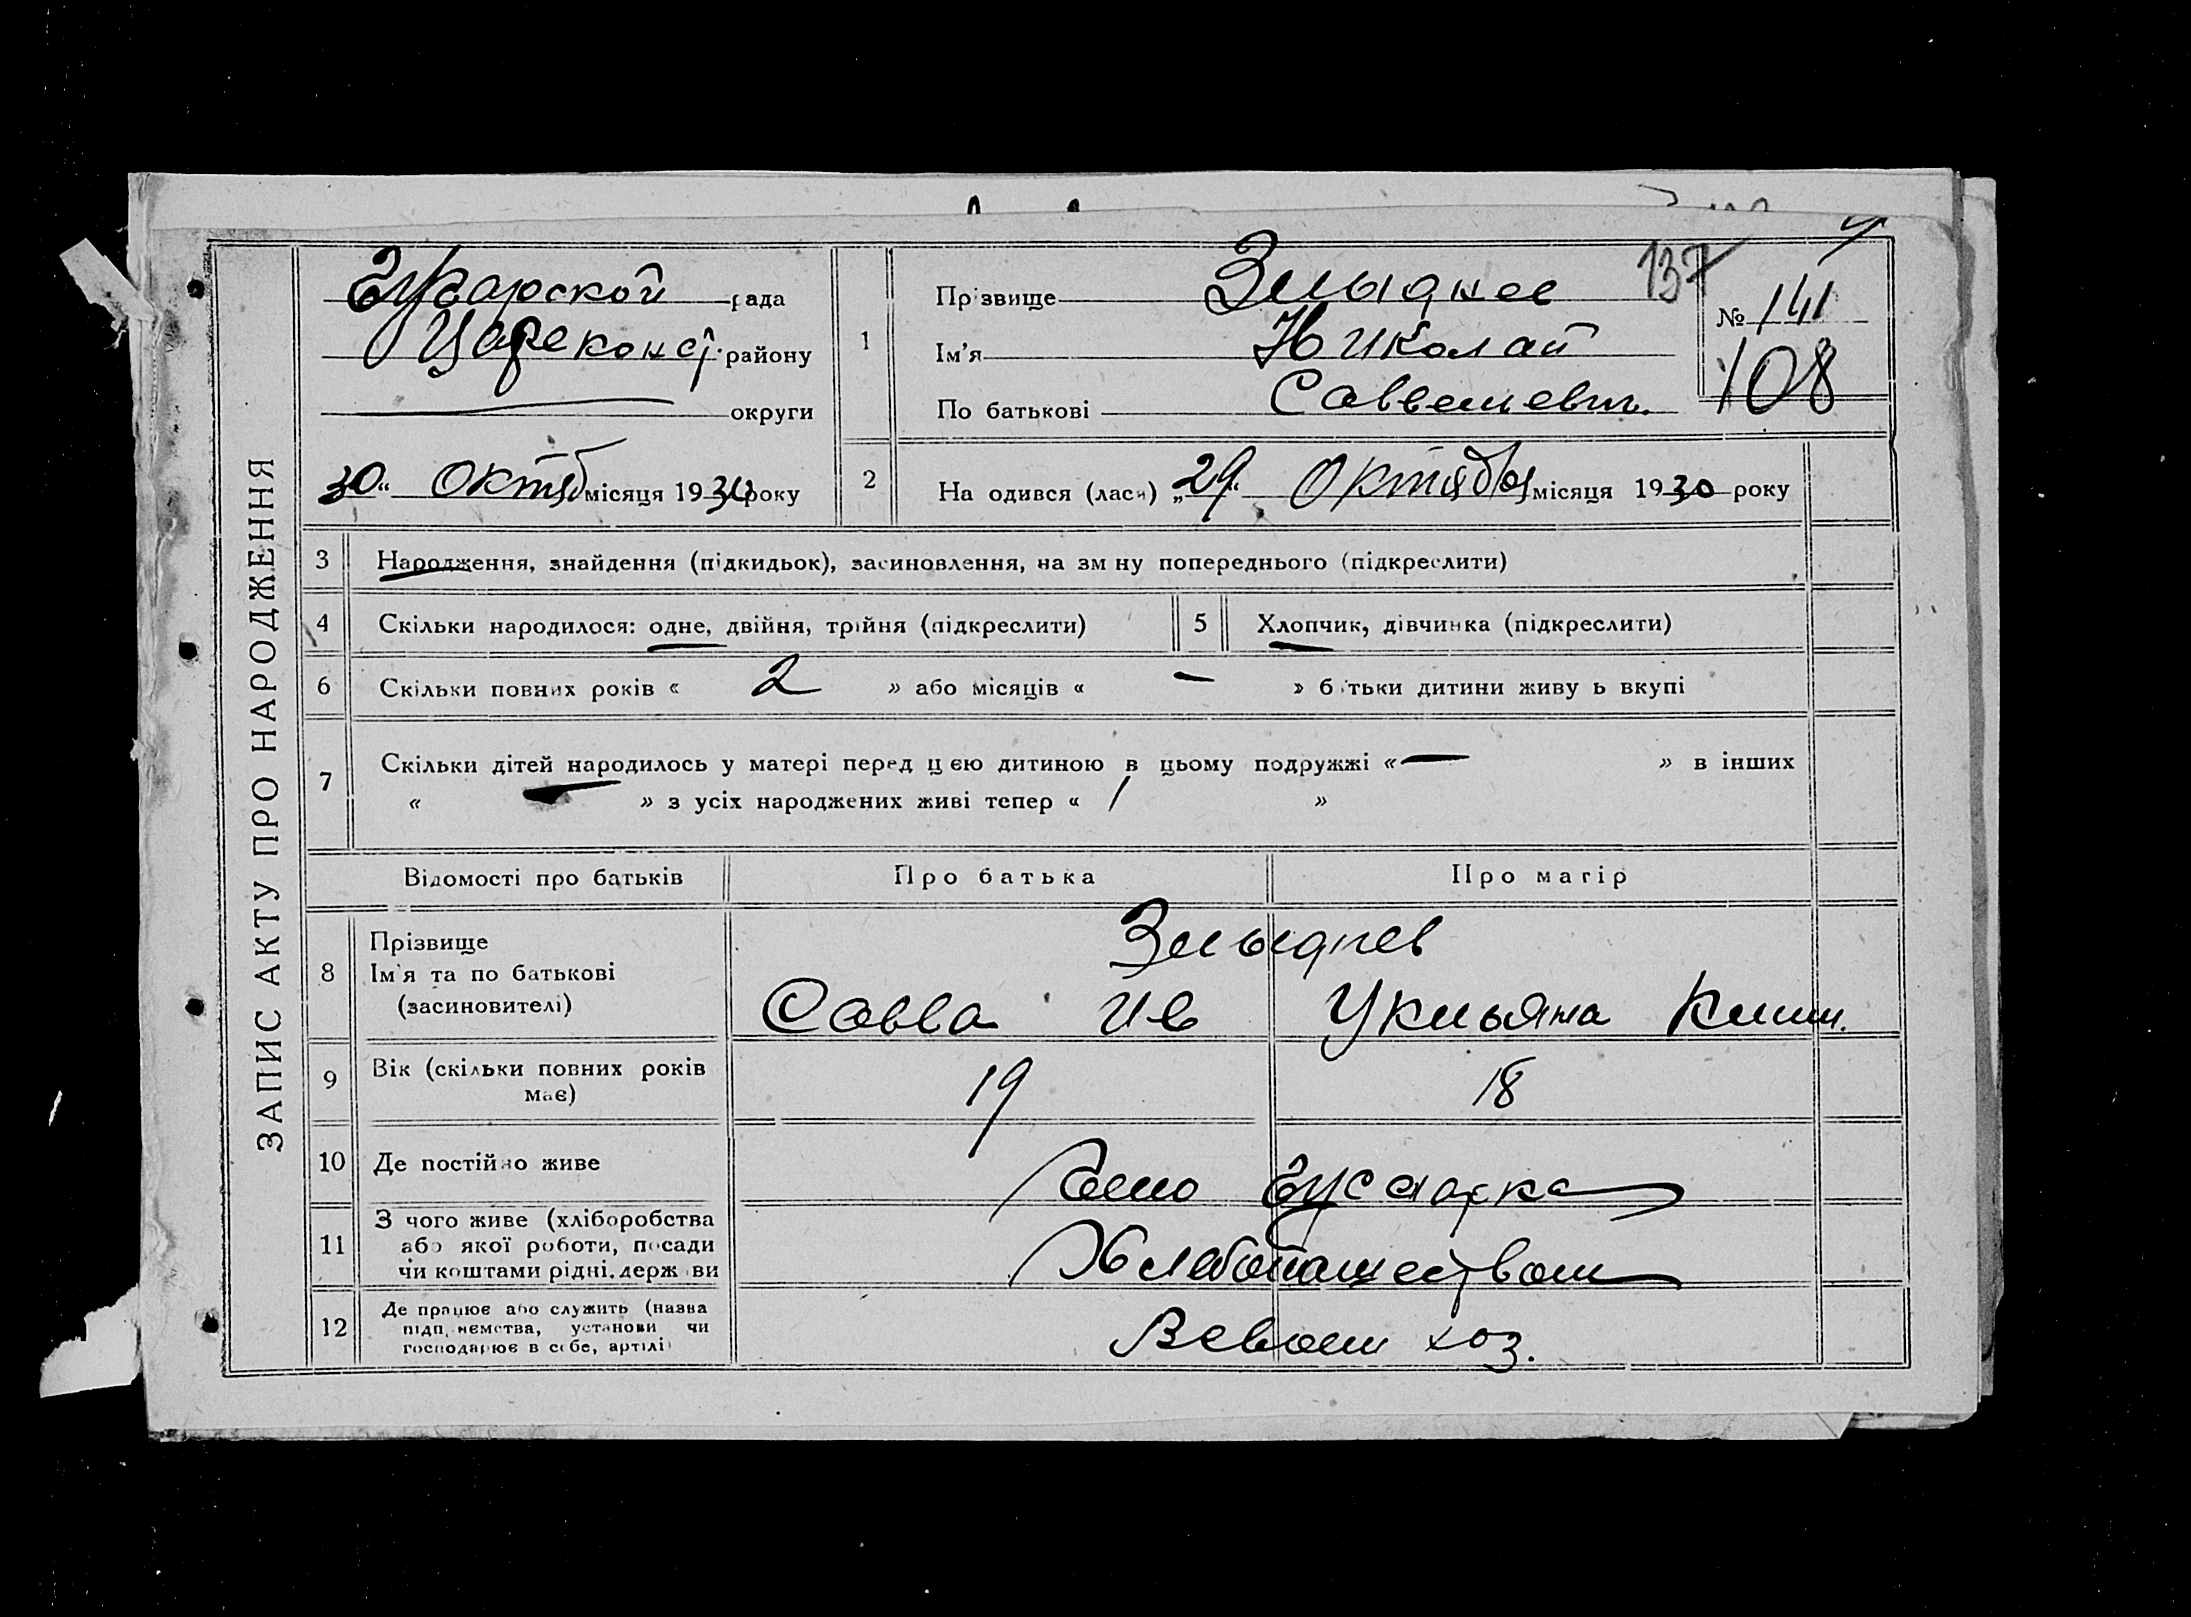 ЗАПИС АКТУ ПРО НАРОДЖЕННЯ
рада
Цареконст. району
округи
30 " октяб місяця 1930 року
1
Прізвище
137
Ім'я Николай
По батькові Саввельевич.
№ 141
108
2 На одився (лася) „ 29 " Октября місяця 1930 року
3 Народження, знайдення (підкидьок), засиновлення, на зм ну попереднього (підкреслити)
4 Скільки народилося: одне, двійня, трійня (підкреслити) 5 Хлопчик, дівчинка (підкреслити)
6 Скільки повних років « 2 » або місяців « — » б тьки дитини живу ь вкупі
7 Скільки дітей народилось у матері перед цією дитиною в цьому подружжі « — » в інших
« — » з усіх народжених живі тепер « 1 »
Відомості про батьків Про батька Про матір
8 Прізвище
Ім'я та по батькові
(засиновителі)
Савва Ив Укилья Клим.
9 Вік (скільки повних років має) 19 18
10 Де постійно живе Село
11 З чого живе (хліборобства
або якої роботи, посади
чи коштами рідні. держ ви
Хлебопашеством
12 Де працює або служить (назва
підп. ємства, установи чи
господарює в себе, артілі)
В своем хоз.